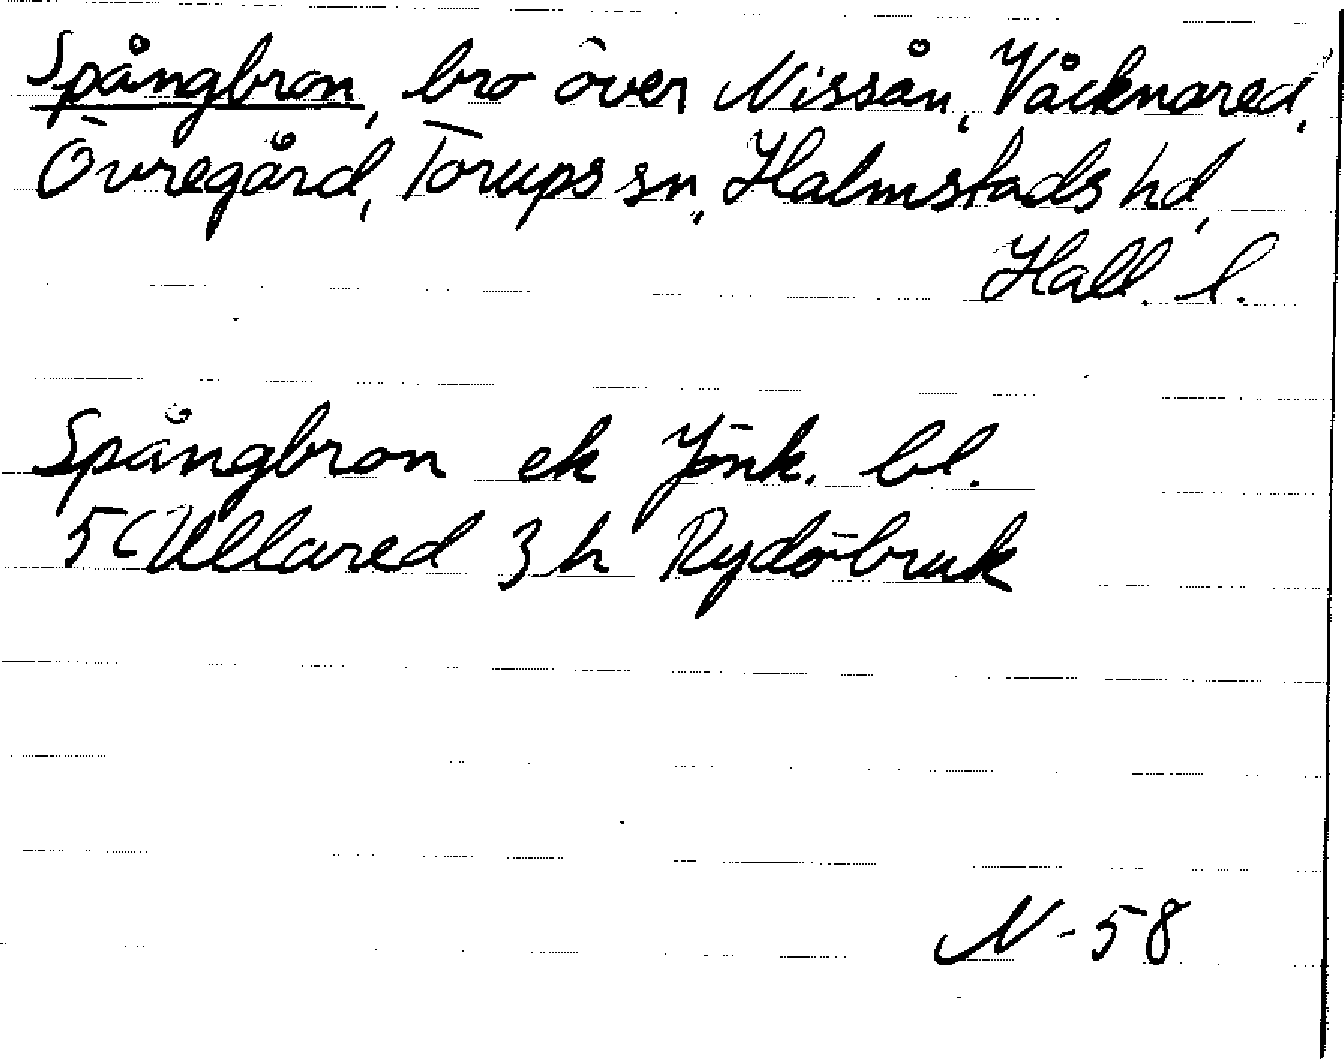 Spångbron, bro över Nissån, Våcknared,
Övregård, Torups sn, Halmstads hd,
Hall. l.
Spångbron ek Jönk. bl.
5C Ullared 3 h Rydöbruk
N-58